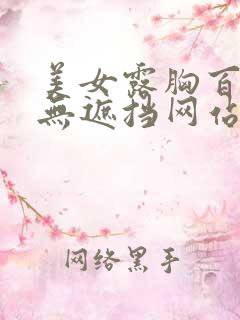 美女露胸百
無遮挡网佔
网络黑手